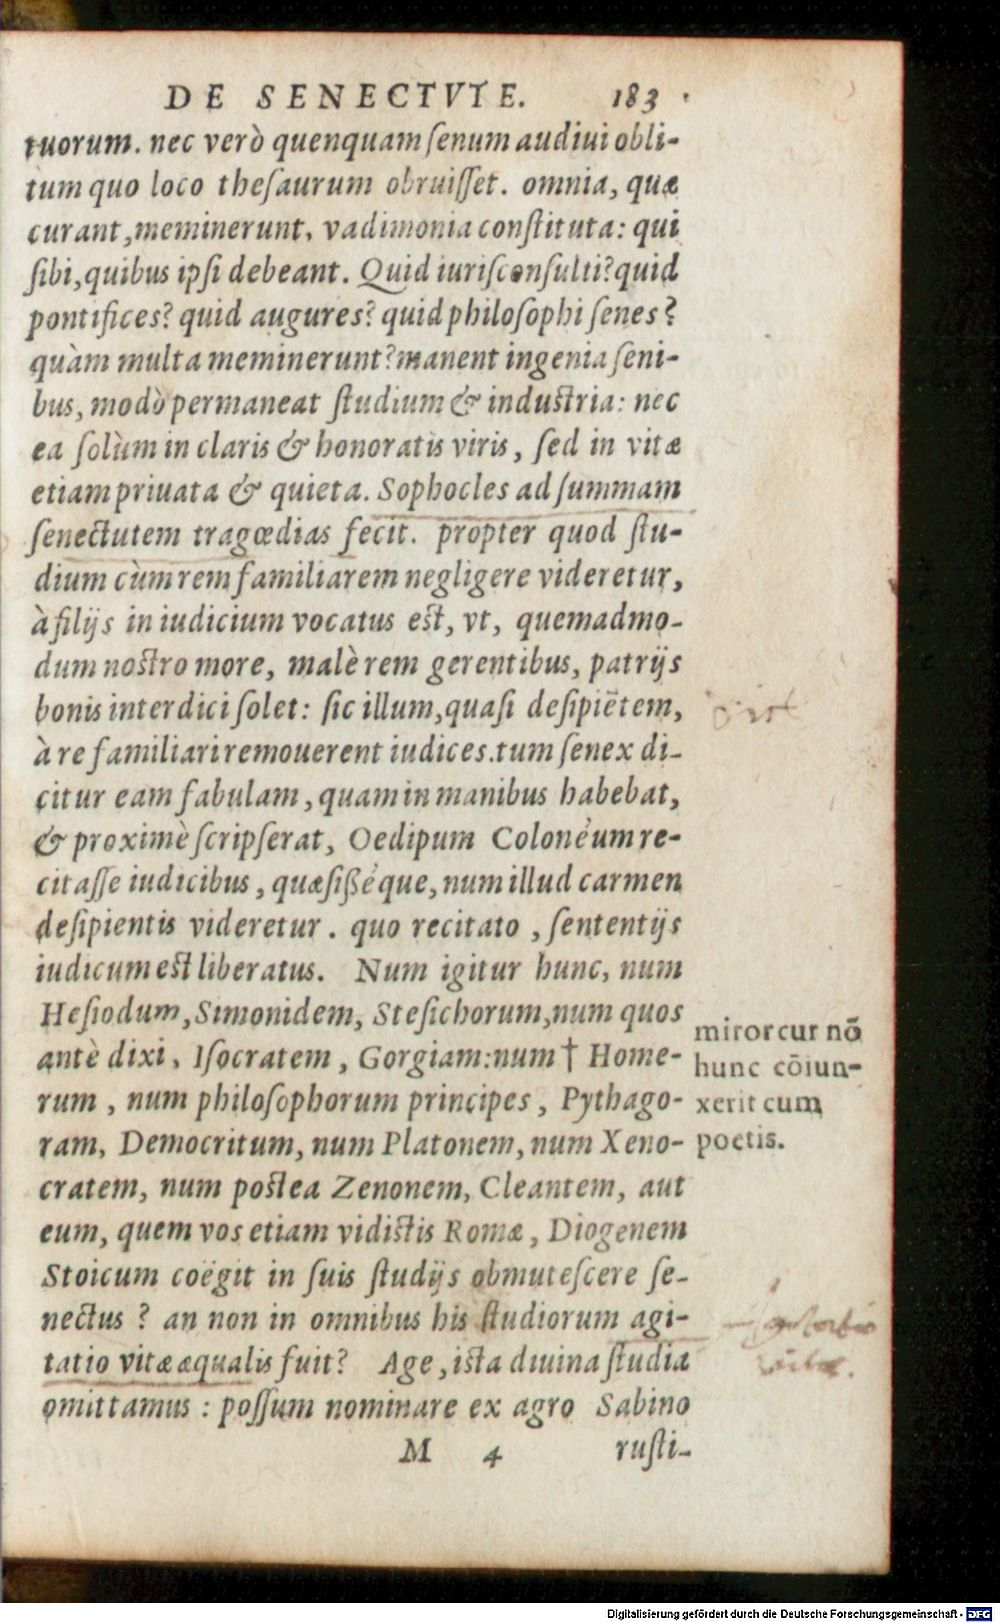 DE SENECTVTE. 183
tuorum. nec verò quenquam ſenum audiui obli-
tum quo loco theſaurum obruiſſet. omnia, quæ
curant, meminerunt. vadimonia conſtituta: qui
ſibi, quibus ipſi debeant. Quid iuriſconſulti? quid
pontifices? quid augures? quid philoſophi ſenes?
quàm multa meminerunt? manent ingenia ſeni-
bus, modò permaneat ſtudium & induſtria: nec
ea ſolùm in claris & honoratis viris, ſed in vitæ
etiam priuata & quieta. Sophocles ad ſummam
ſenectutem tragœdias fecit. propter quod ſtu-
dium cùm rem familiarem negligere videretur,
à filijs in iudicium vocatus eſt, vt, quemadmo-
dum noſtro more, malè rem gerentibus, patrijs
bonis interdici ſolet: ſic illum, quaſi deſipiētem,
à re familiari remouerent iudices. tum ſenex di-
citur eam fabulam, quam in manibus habebat,
& proximè ſcripſerat, Oedipum Colonéum re-
citaſſe iudicibus, quæſißéque, num illud carmen
deſipientis videretur. quo recitato, ſententijs
iudicum eſt liberatus. Num igitur hunc, num
Heſiodum, Simonidem, Steſichorum, num quos
antè dixi, Iſocratem, Gorgiam: num † Home-
rum, num philoſophorum principes, Pythago-
ram, Democritum, num Platonem, num Xeno-
cratem, num poſtea Zenonem, Cleantem, aut
eum, quem vos etiam vidiſtis Romæ, Diogenem
Stoicum coëgit in ſuis ſtudijs obmuteſcere ſe-
nectus? an non in omnibus his ſtudiorum agi-
tatio vitæ æqualis fuit? Age, iſta diuina ſtudia
omittamus: poſſum nominare ex agro Sabino
M 4 ruſti-
miror cur nō
hunc cōiun-
xerit cum
poetis.
Digitalisierung gefördert durch die Deutsche Forschungsgemeinschaft - DFG